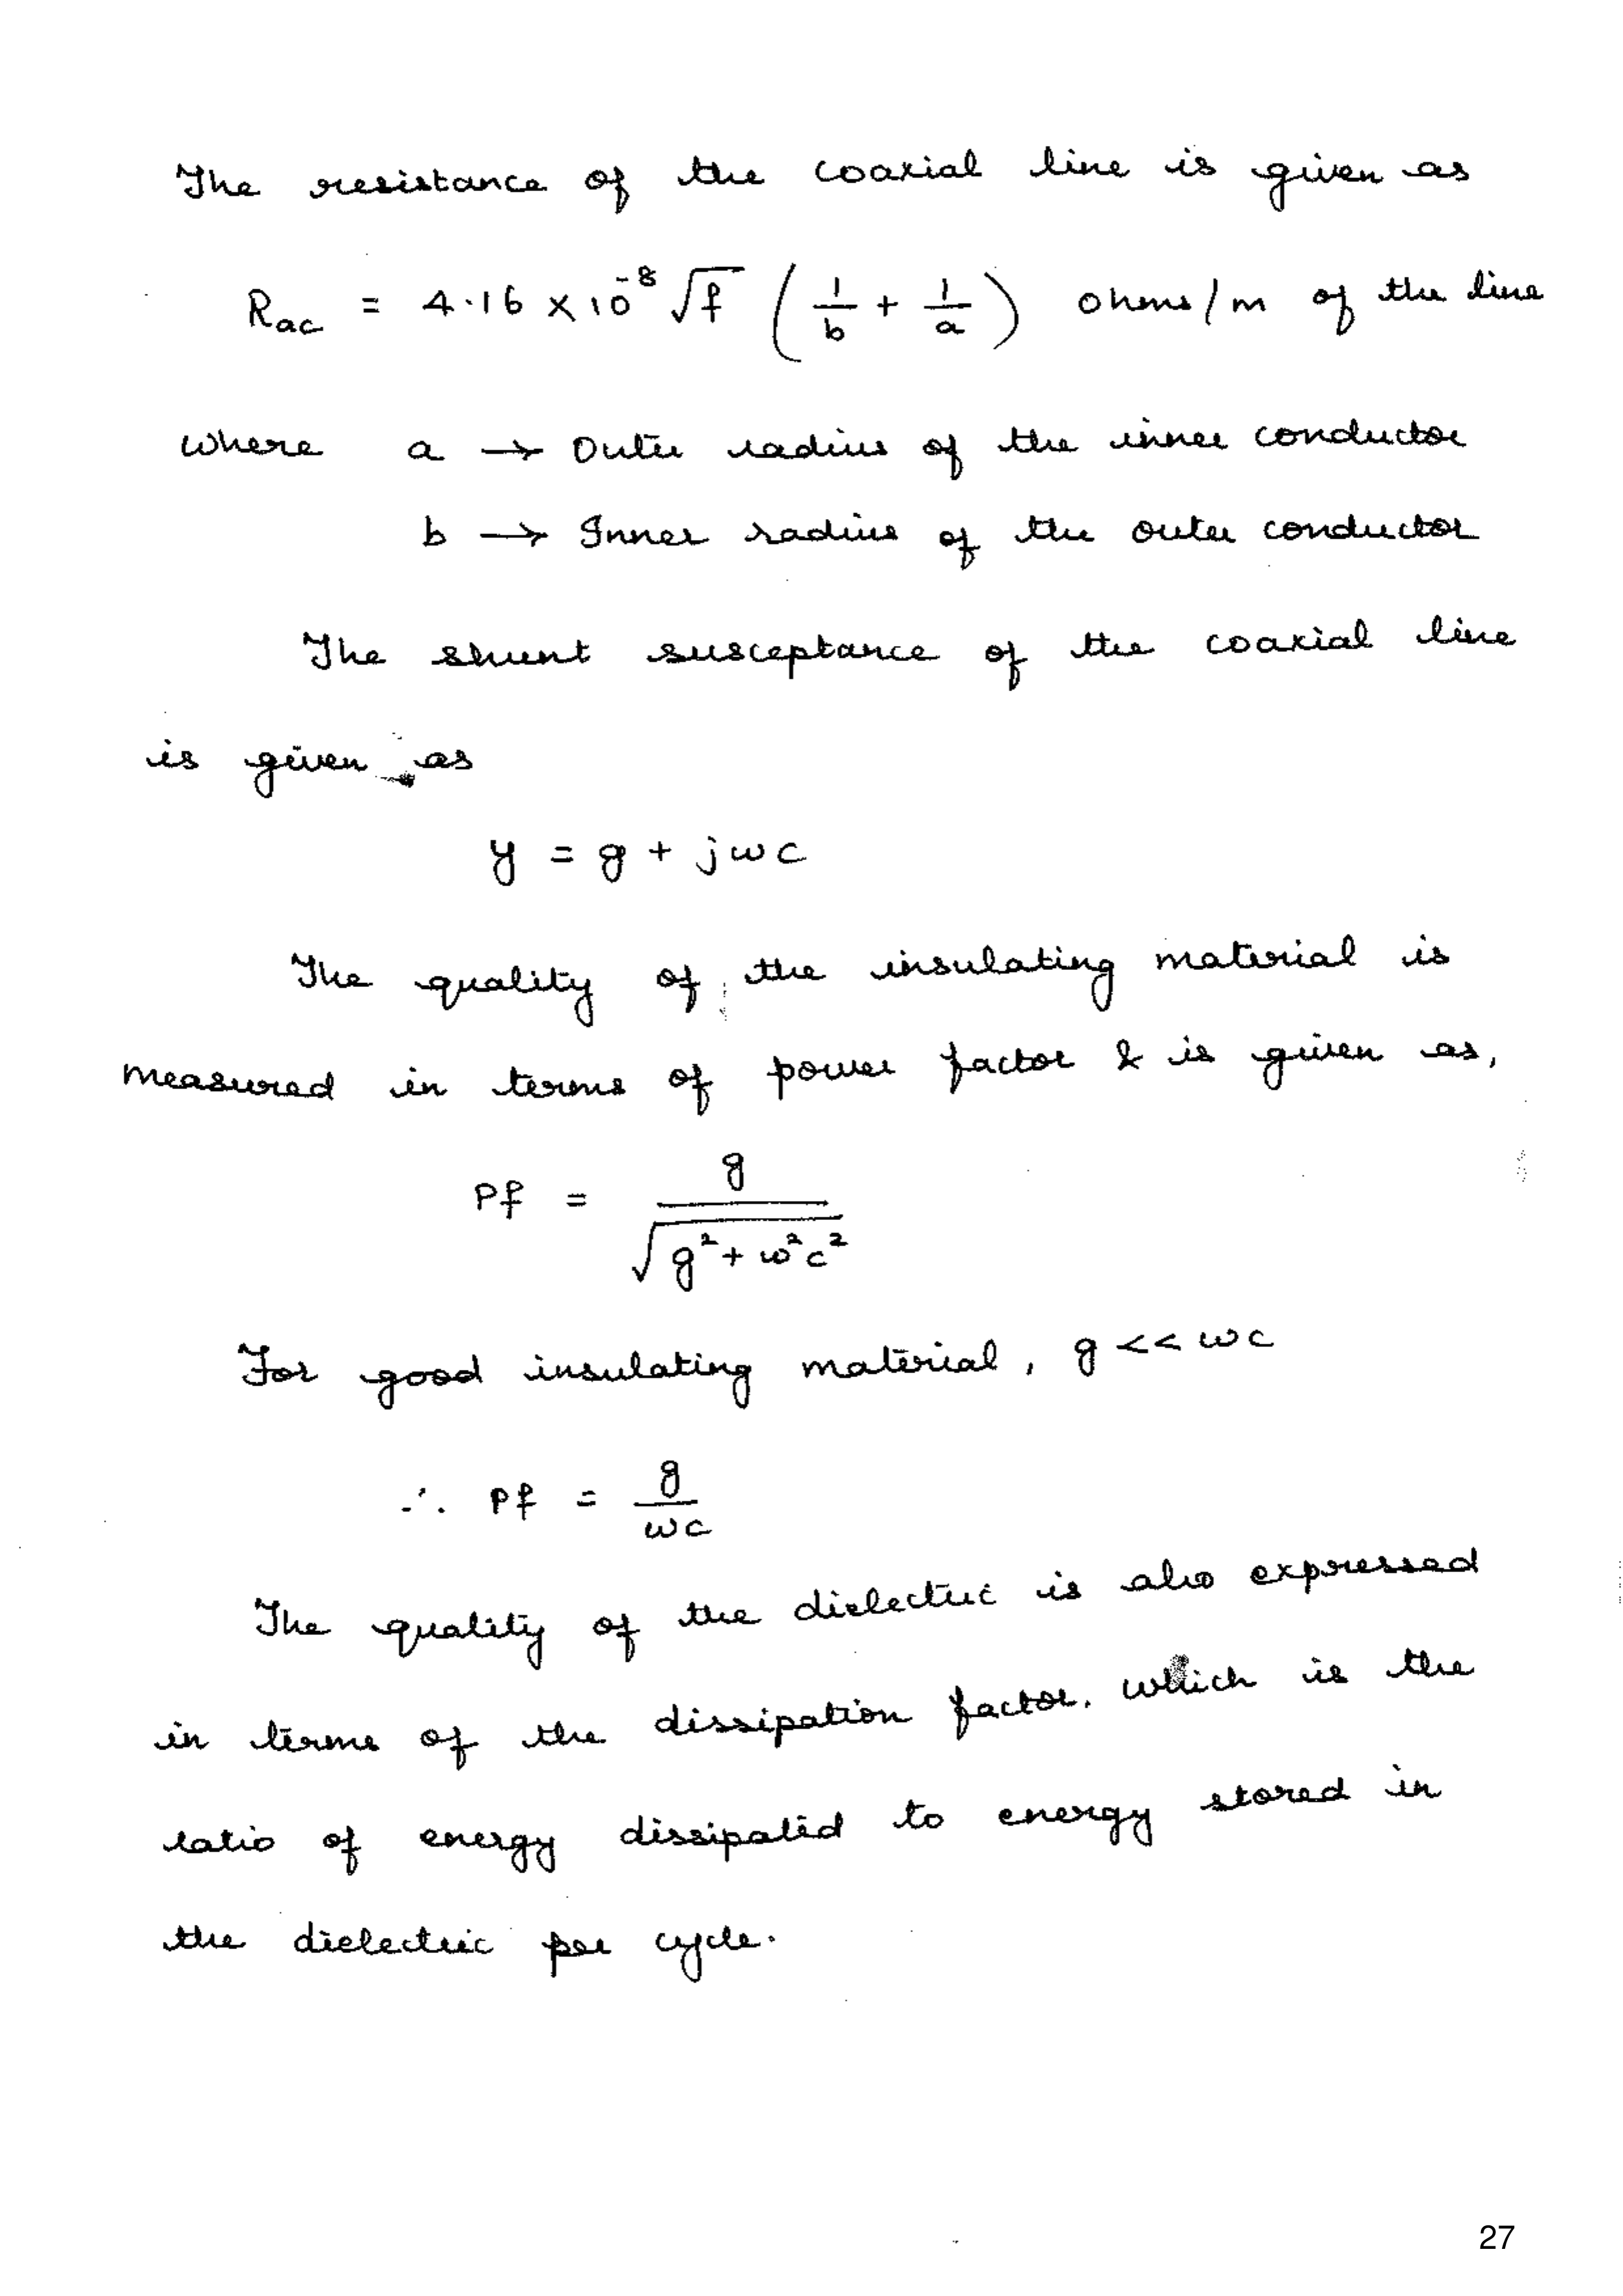 The resistance of the coaxial line is given as
Rac = 4.16 × 10⁻⁸ √f (1/b + 1/a) ohms/m of the line
where a → Outer radius of the inner conductor
b → Inner radius of the outer conductor
The shunt susceptance of the coaxial line
is given as
y = g + jωc
The quality of the insulating material is
measured in terms of power factor & is given as,
Pf = g / √(g² + ω²c²)
For good insulating material, g << ωc
∴ Pf = g / ωc
The quality of the dielectric is also expressed
in terms of the dissipation factor, which is the
ratio of energy dissipated to energy stored in
the dielectric per cycle.
27